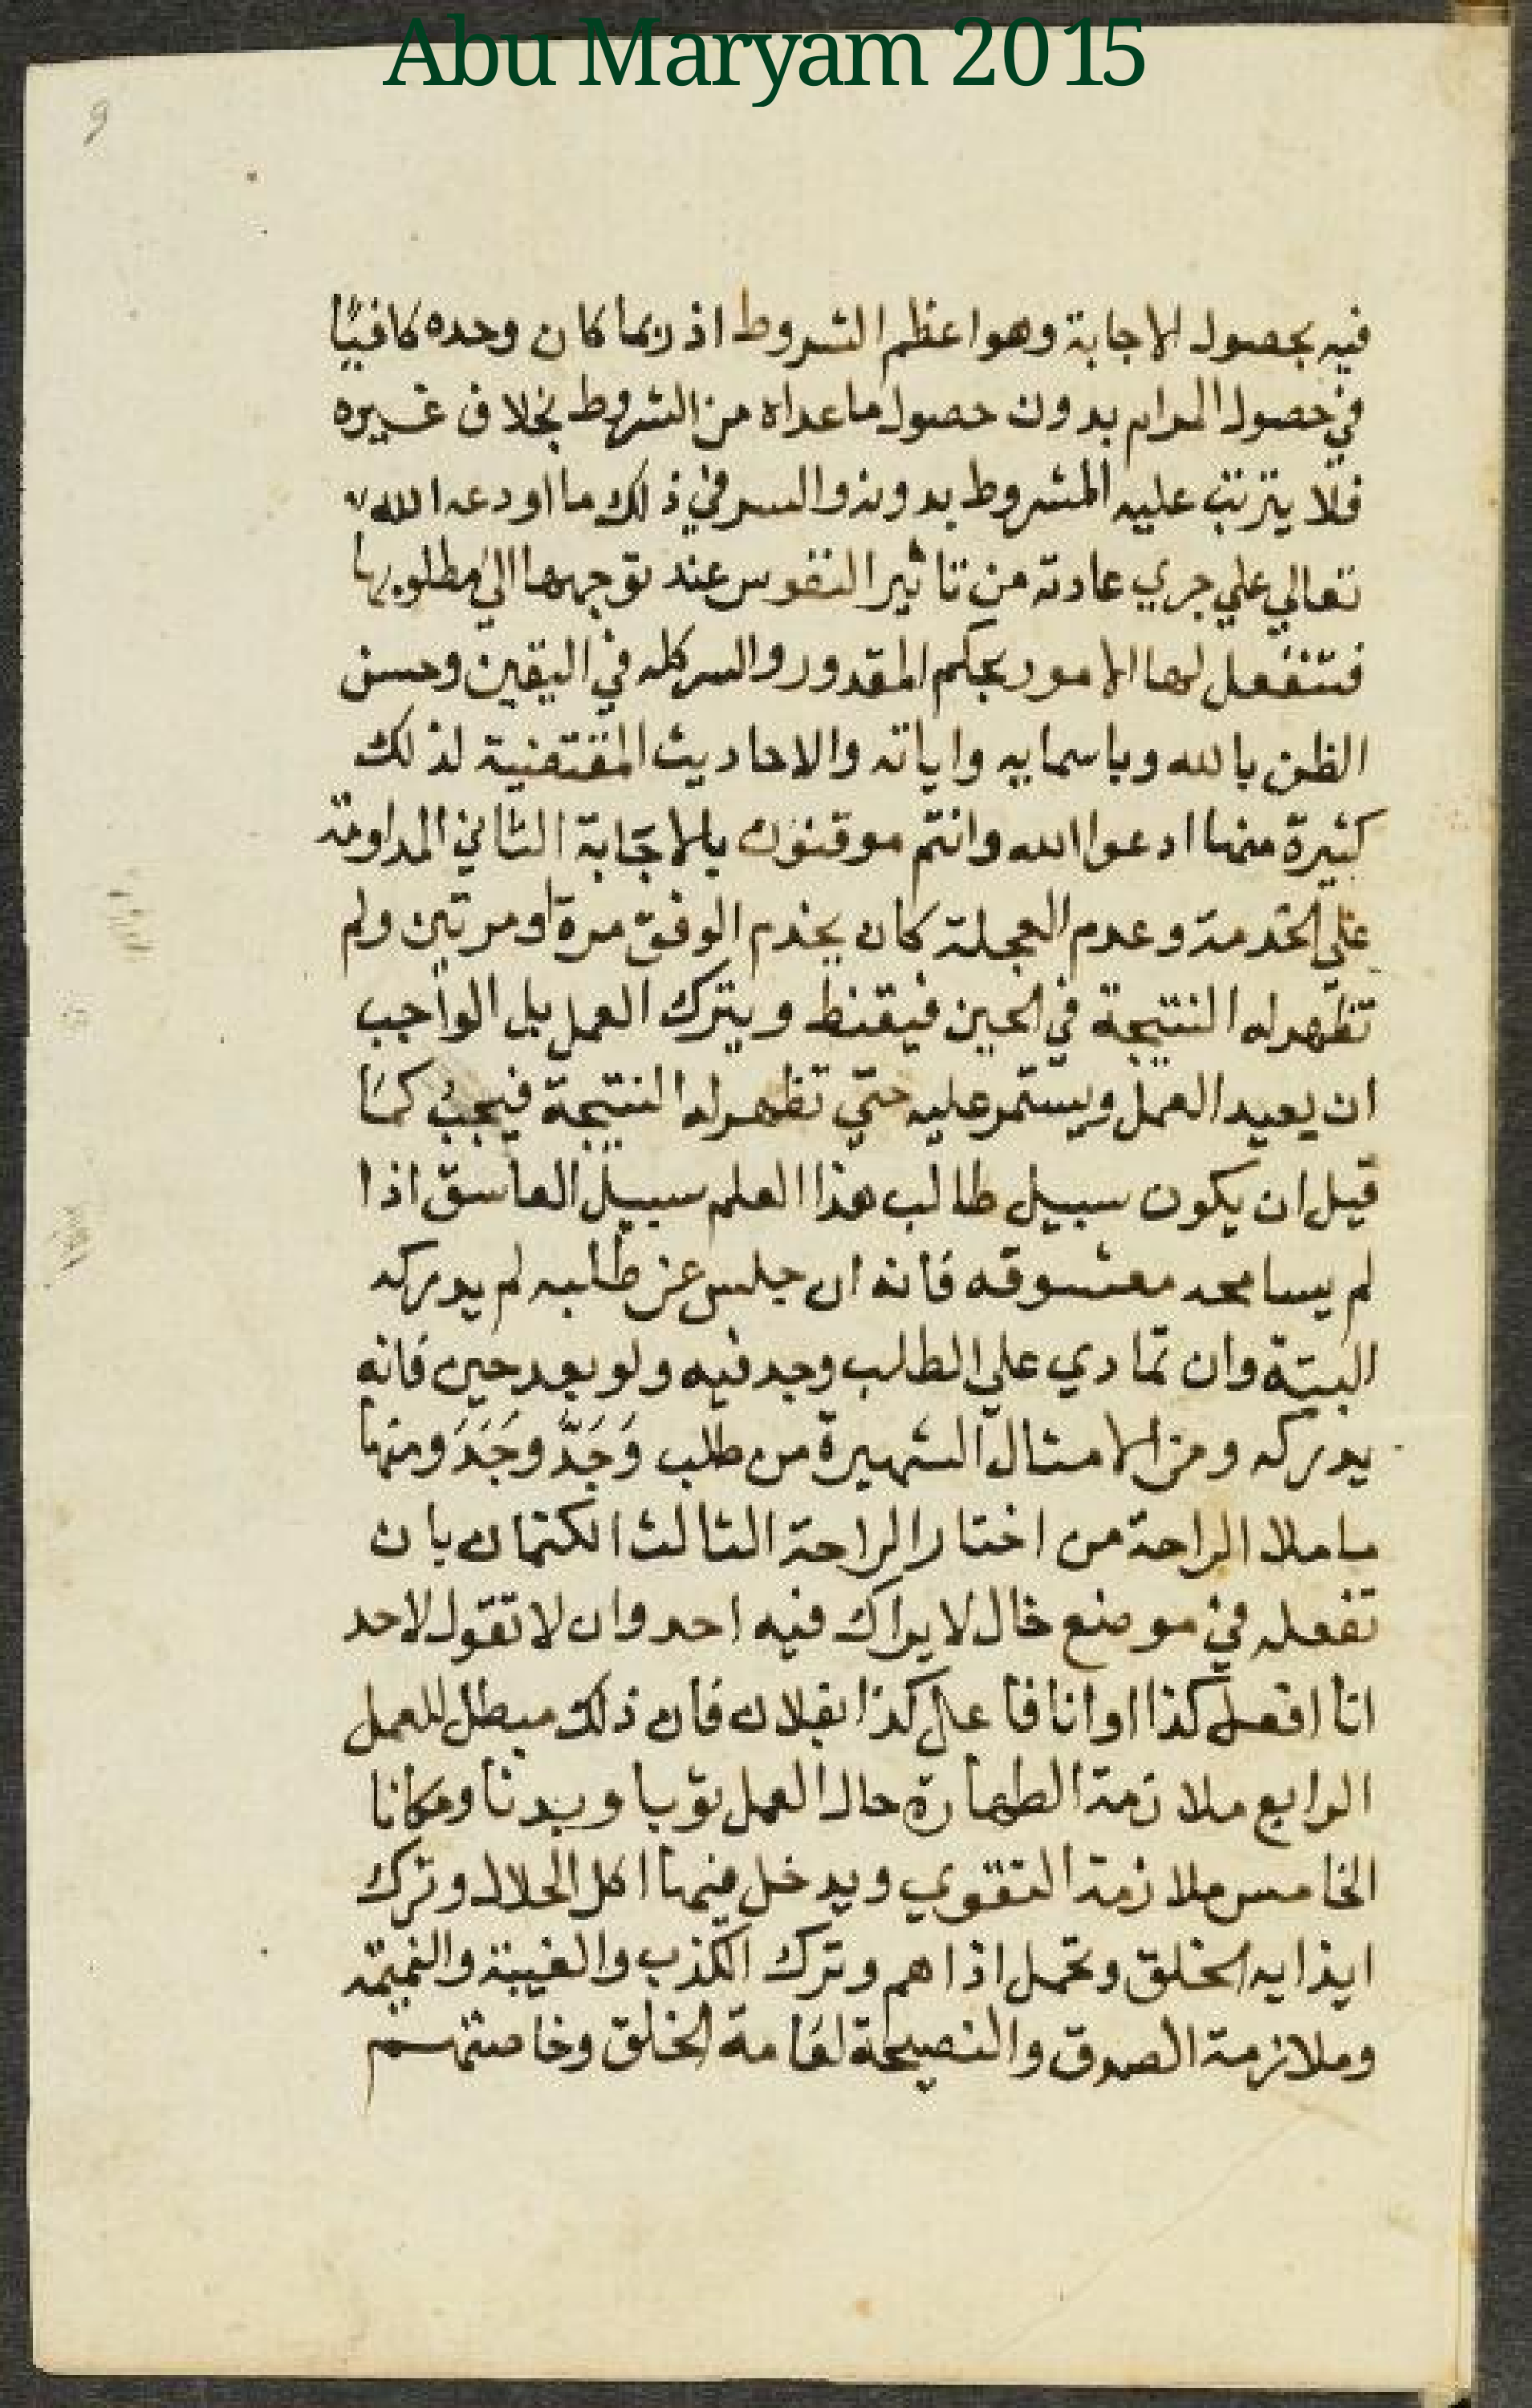 Abu Maryam 2015
9
فيه بحصول الاجابة وهو اعظم الشروط اذ ربما كان وحده كافيًا
في حصول المرام بدون حصول ما عداه من الشروط بخلاف غيره
فلا يترتب عليه المشروط بدونه والسر في ذلك ما اودعه الله
تعالي علي جري عادته من تاثير النفوس عند توجهها الي مطلوبها
فتنفعل لها الامور بحكم المقدور والسر كله في اليقين وحسن
الظن بالله وباسمايه واياته والاحاديث المقتضية لذلك
كثيرة منها ادعوا الله وانتم موقنون بالاجابة الثاني المداومة
علي الخدمة وعدم العجلة كان يخدم الوفق مرة او مرتين ولم
تظهر له النتيجة في الحين فيقنط ويترك العمل بل الواجب
ان يعيد العمل ويستمر عليه حتي تظهر له النتيجة فيجب كما
قيل ان يكون سبيل طالب هذا العلم سبيل العاسق اذا
لم يسامحه معشوقه فانه ان جلس عن طلبه لم يدركه
البتة وان تمادي علي الطلب وجد فيه ولو بعد حين فانه
يدركه ومن الامثال الشهيرة من طلب وَجَدَّ وَجَدَ ومنها
ما ملا الراحة من اختار الراحة الثالث الكتمان بان
تفعله في موضع خال لا يراك فيه احد وان لا تقول لاحد
انا افعل كذا او انا فاعل كذا بفلان فان ذلك مبطل للعمل
الرابع ملازمة الطهارة حال العمل ثوبا وبدنا ومكانا
الخامس ملازمة التقوي ويدخل فيها اكل الحلال وترك
ايذايه الخلق وتحمل اذاهم وترك الكذب والغيبة والنميمة
وملازمة الصدق والنصيحة لعامة الخلق وخاصتهم